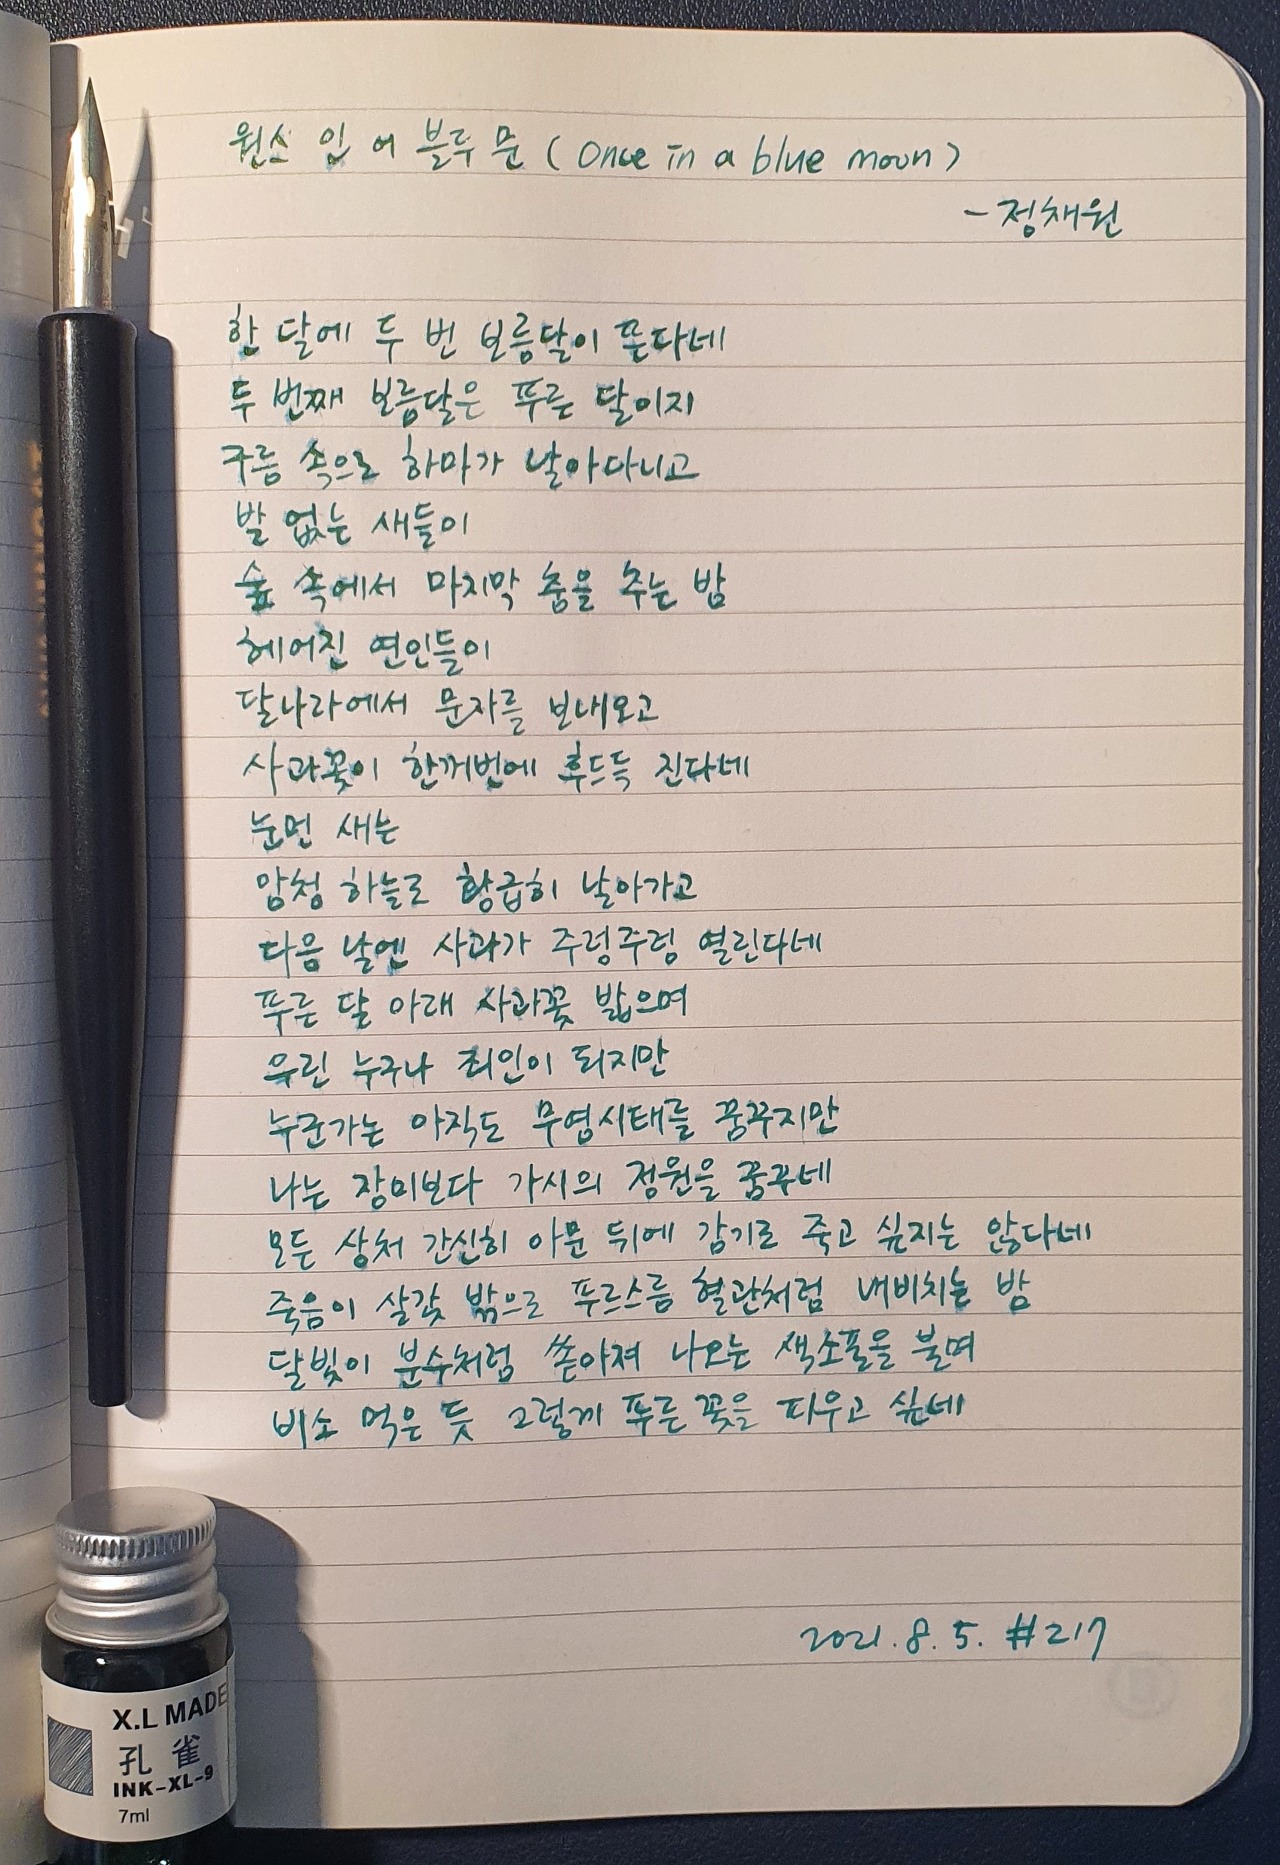 원스 인 어 블루 문 (Once in a blue moon)
- 정채원
한 달에 두 번 보름달이 뜬다네
두 번째 보름달은 푸른 달이지
구름 속으로 하마가 날아다니고
발 없는 새들이
숲 속에서 마지막 춤을 추는 밤
헤어진 연인들이
달나라에서 문자를 보내오고
사과꽃이 한꺼번에 후드득 진다네
눈먼 새는
암청 하늘로 황급히 날아가고
다음 날엔 사과가 주렁주렁 열린다네
푸른 달 아래 사과꽃 밟으며
우린 누구나 죄인이 되지만
누군가는 아직도 무염시태를 꿈꾸지만
나는 장미보다 가시의 정원을 꿈꾸네
모든 상처 간신히 아문 뒤에 감기로 죽고 싶지는 않다네
죽음이 살갗 밖으로 푸르스름 혈관처럼 내비치는 밤
달빛이 분수처럼 쏟아져 나오는 색소폰을 불며
비소 먹은 듯 그렇게 푸른 꽃을 피우고 싶네
2021. 8. 5. #217
X.L MADE
孔雀
INK-XL-9
7ml